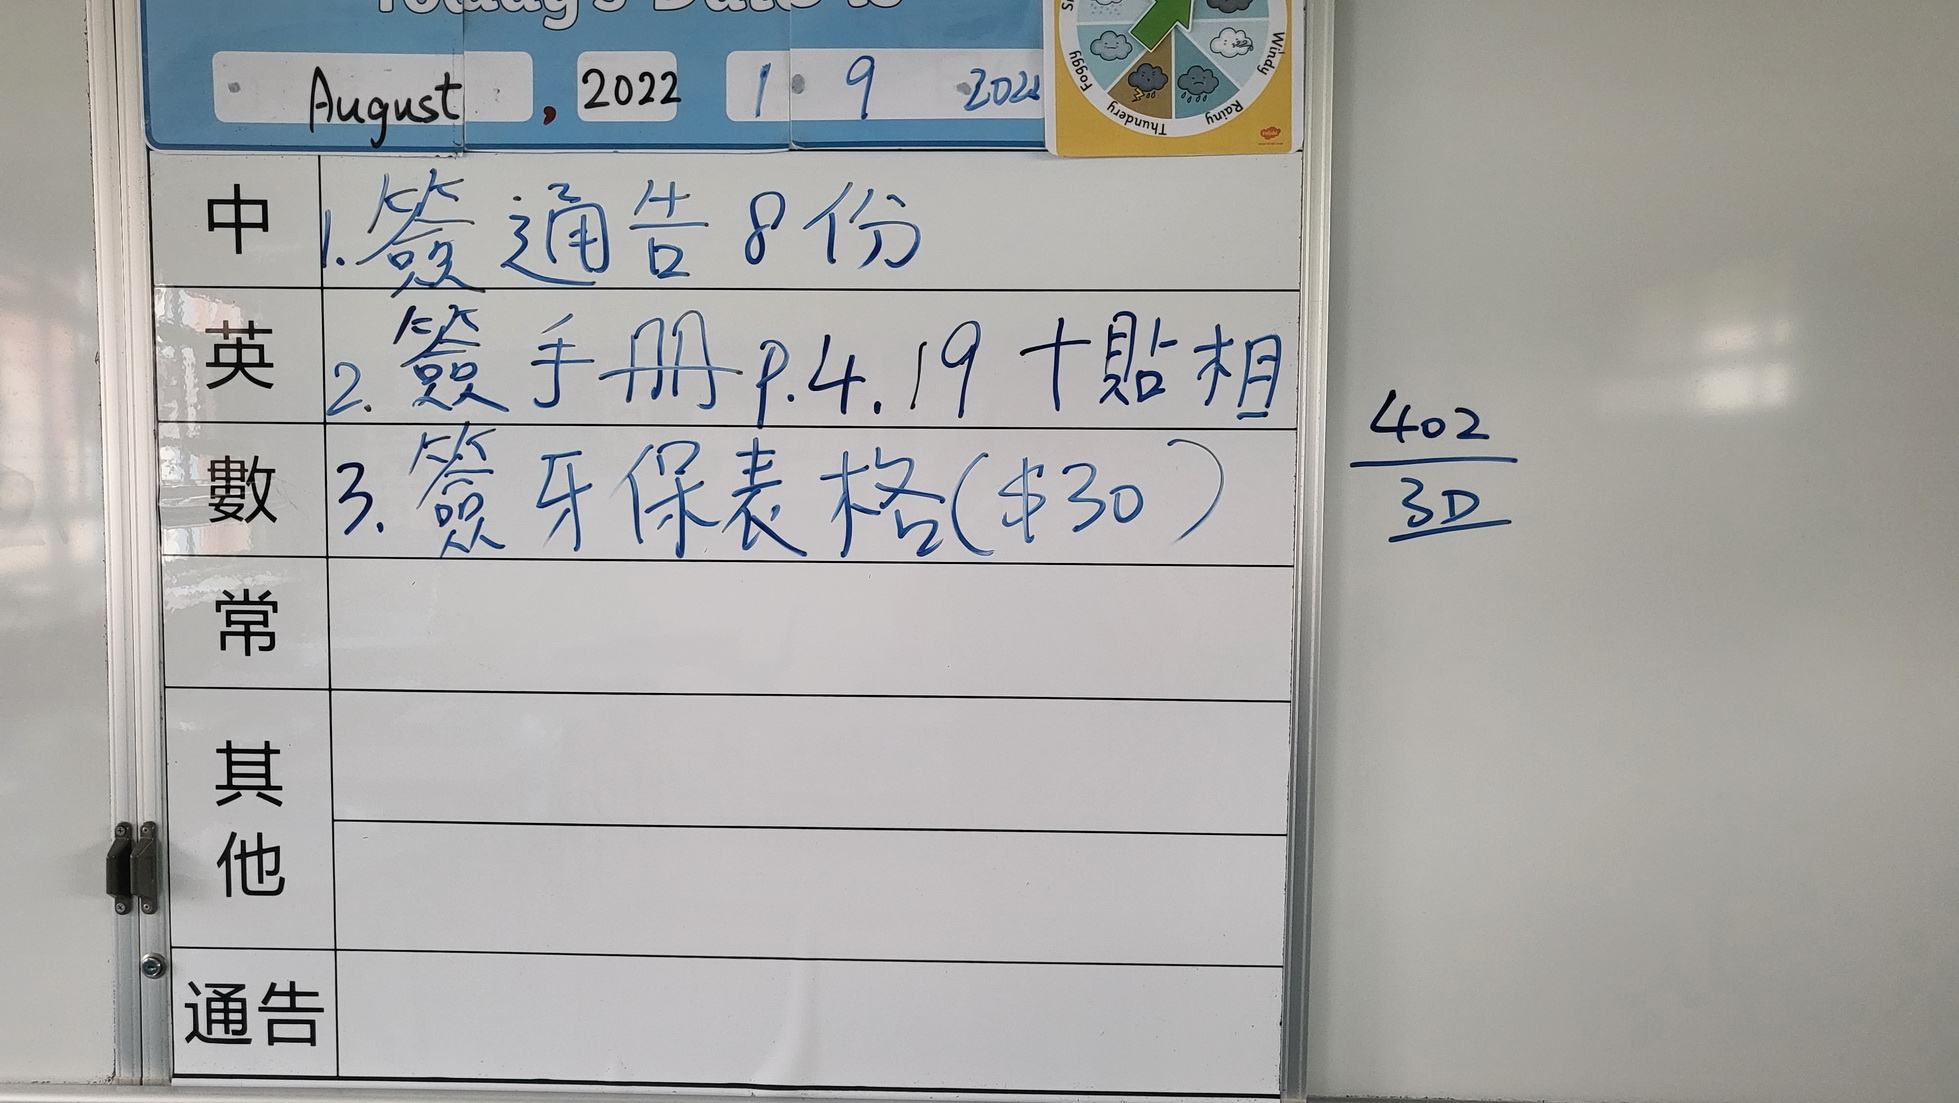 Today's Date is
August , 2022 1 9 202
Foggy
Thundery
Rainy
Windy
中 1. 簽通告8份
英 2. 簽手冊 p.4.19 十貼相
數 3. 簽牙保表格($30)
常
其他
通告
402
3D